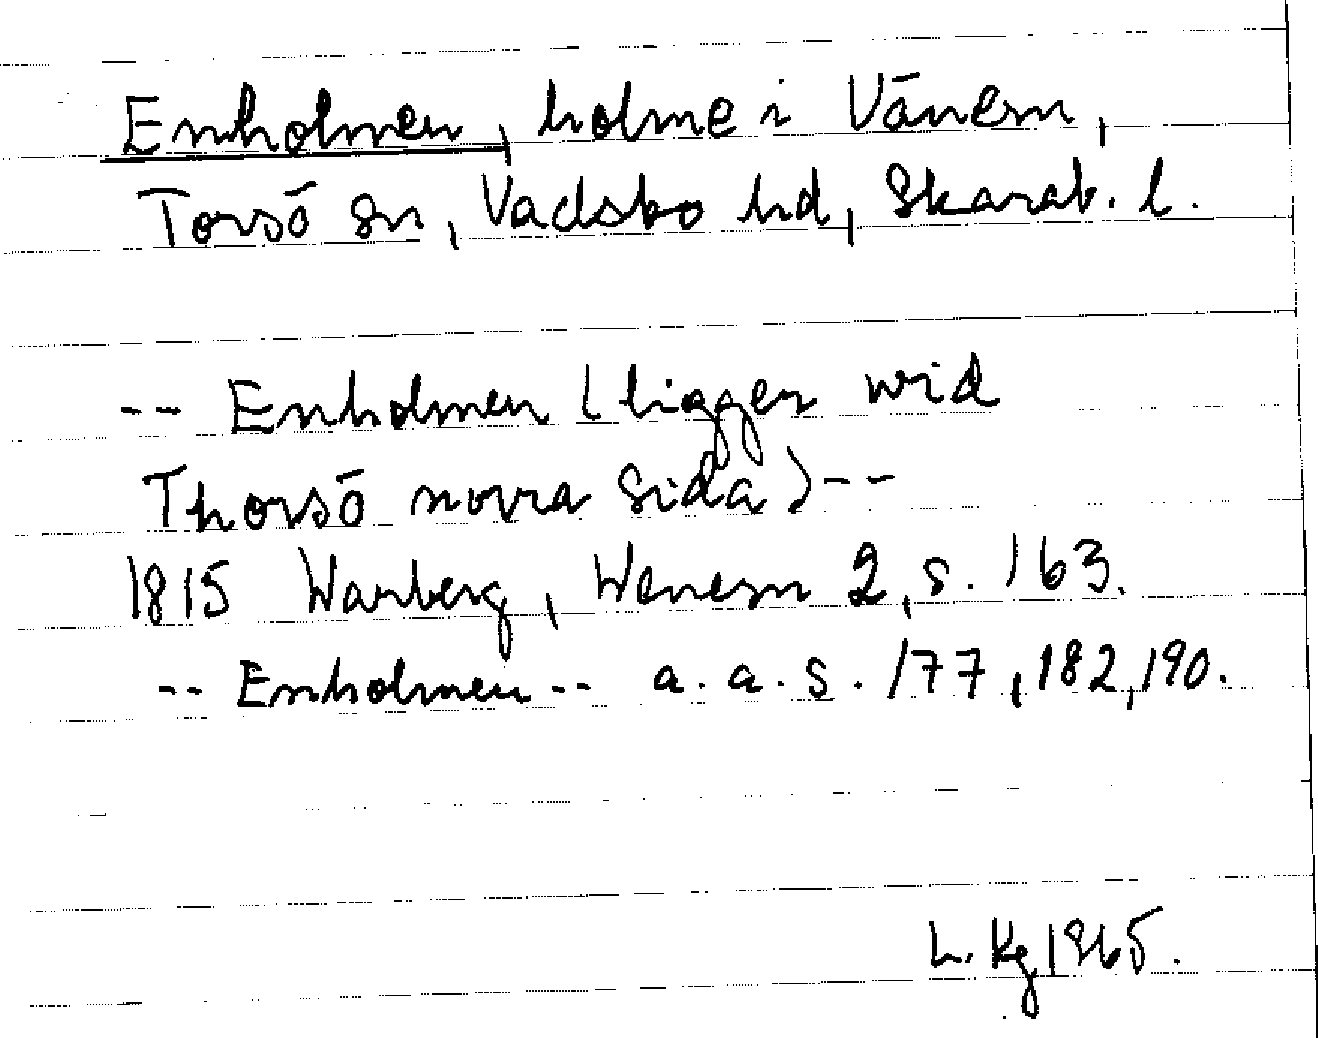 Enholmen, holme i Vänern,
Torsö sn, Vadsbo hd, Skarab. l.
-- Enholmen (ligger wid
Thorsö norra sida) --
1815 Warberg, Wenern 2, s. 163.
-- Enholmen -- a. a. s. 177, 182, 190.
L. Kg 1965.